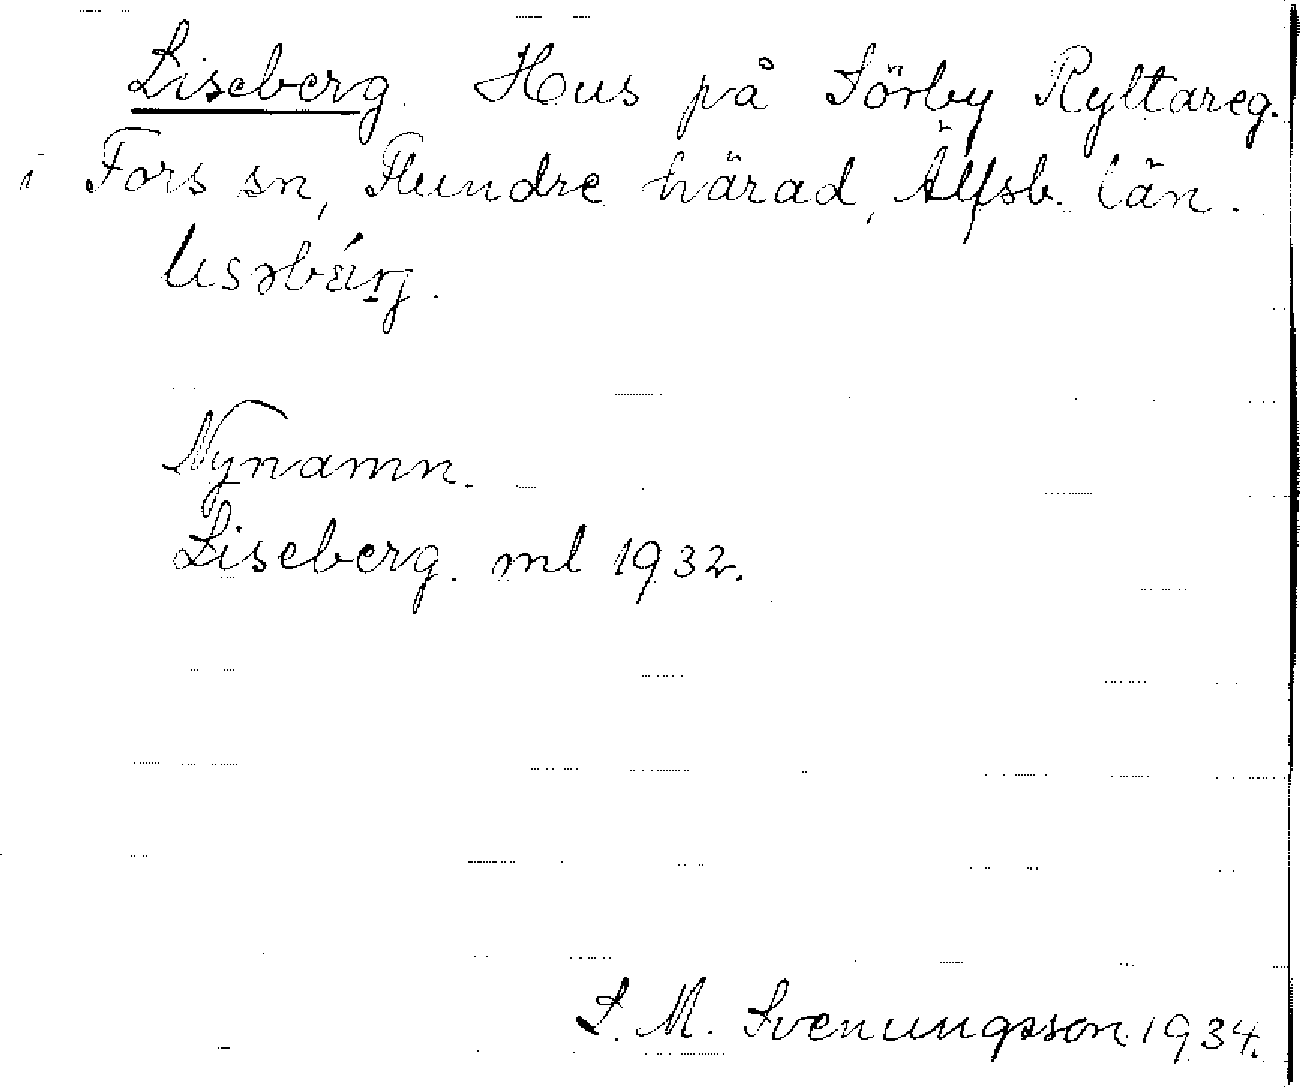 Liseberg. Hus på Sörby Ryttareg.
i Fors sn, Flundre härad, Älfsb. län.
lisəbærj.
Nynamn.
Liseberg. ml 1932.
S. M. Svenungsson 1934.